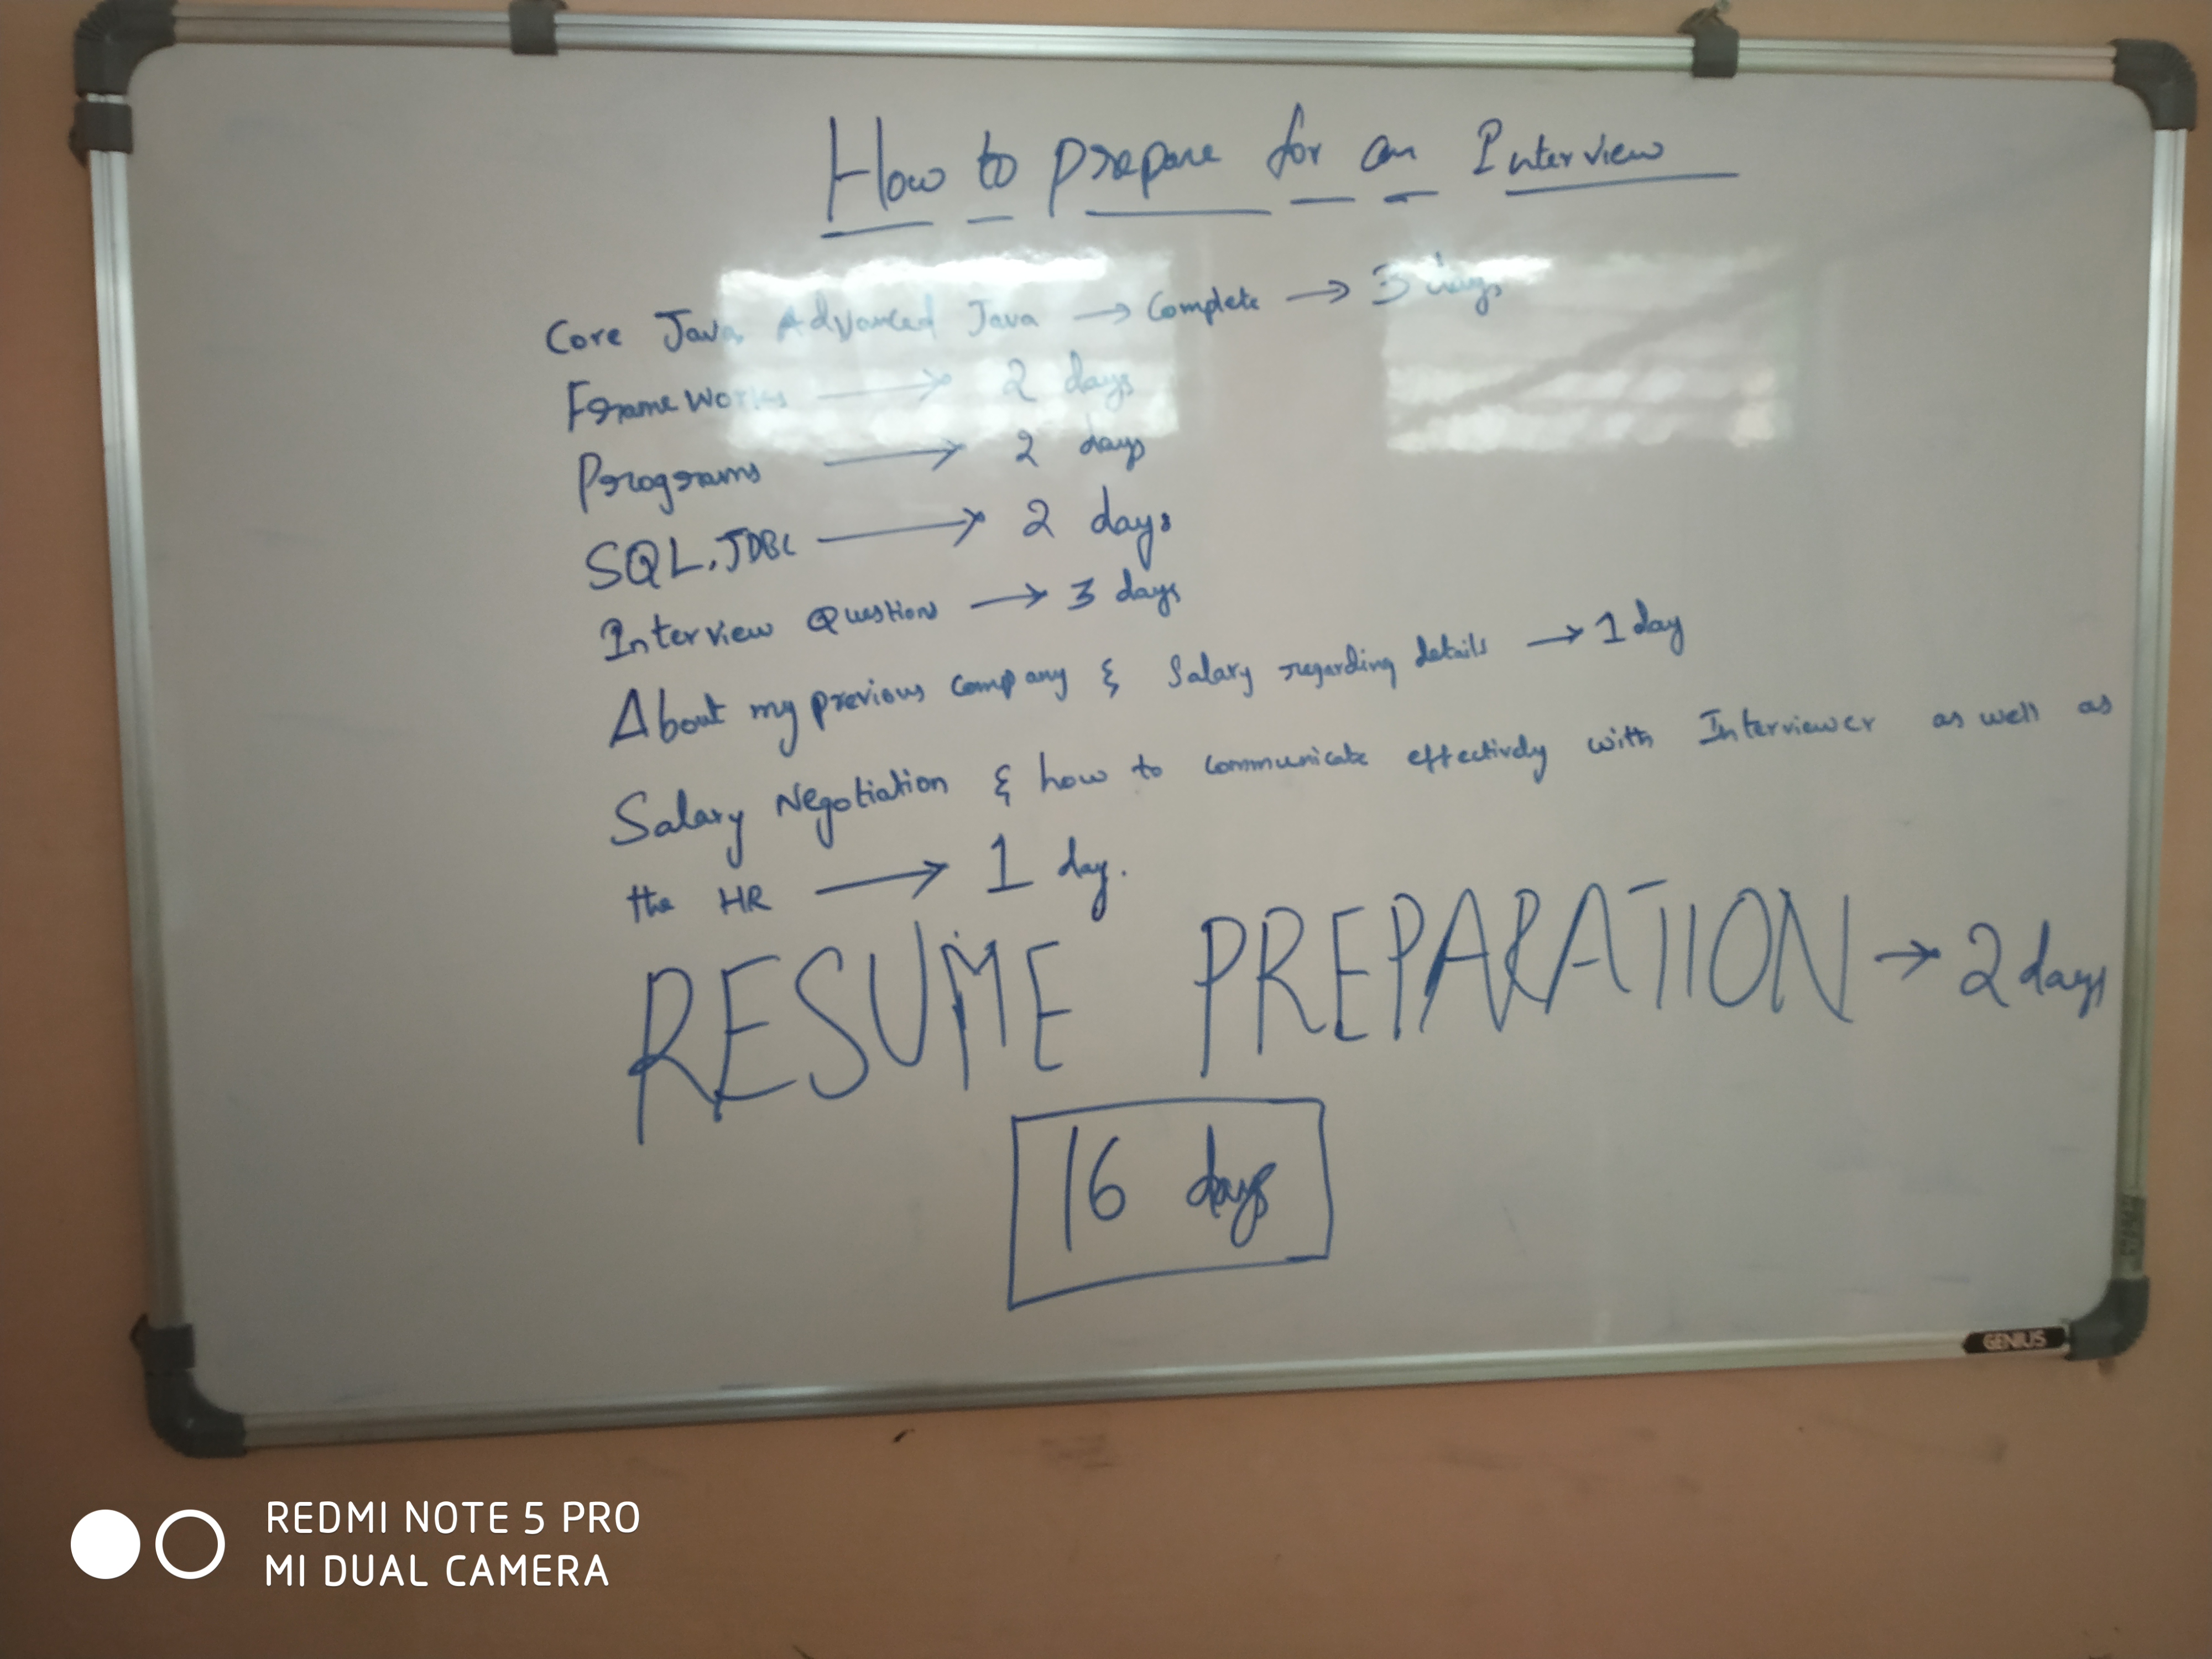 How to prepare for an Interview
Core Java, Advanced Java → Complete → 3 days
Frameworks → 2 days
Programs → 2 days
SQL, JDBC → 2 days
Interview Questions → 3 days
About my previous company & Salary regarding details → 1 day
Salary Negotiation & how to communicate effectively with Interviewer as well as
the HR → 1 day.
RESUME PREPARATION → 2 days
16 days
GENIUS
REDMI NOTE 5 PRO
MI DUAL CAMERA